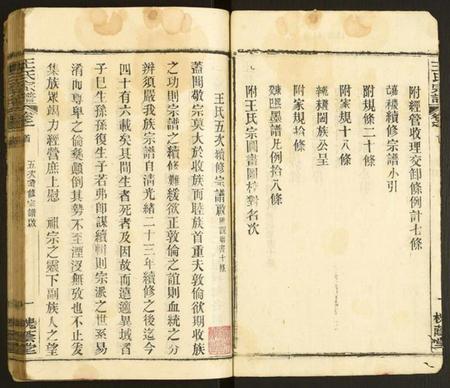 附經管收理交卸條例計七條
續修宗譜小引
附規條二十條
附家規十八條
闔族公呈
附家規拾條
墨譜凡例拾八條
附王氏宗圖書圖校對名次
王氏宗譜
王氏五次續修宗譜啟
蓋聞敬宗莫大於收族而睦族首重夫敦倫欲期收族
之功則宗譜之續修難緩欲正敦倫之誼則血統之分
辨須嚴我族宗譜自清光緒二十三年續修之後迄今
四十有六載矣其間生者死者及因故而遠適異域者
子巳生孫孫復生子若弗即謀續輯則宗派之世系易
淆而尊卑之倫奏顛倒其勢不至湮沒無攷也不止爰
集族眾竭力經營庶上慰 祖宗之靈下副族人之望
王氏宗譜
五次續修宗譜啟
一
槐蔭堂